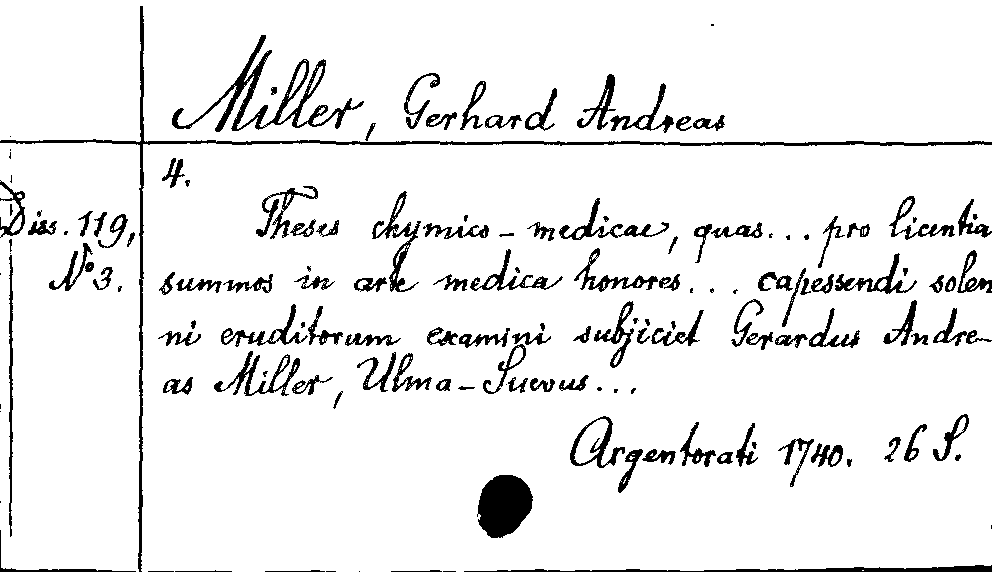 Miller, Gerhard Andreas
4.
Diss. 119,
No 3.
Theses chymico-medicae, quas... pro licentia
summos in arte medica honores... capessendi solen
ni eruditorum examini subjiciet Gerardus Andre-
as Miller, Ulma-Suevus...
Argentorati 1740. 26 S.